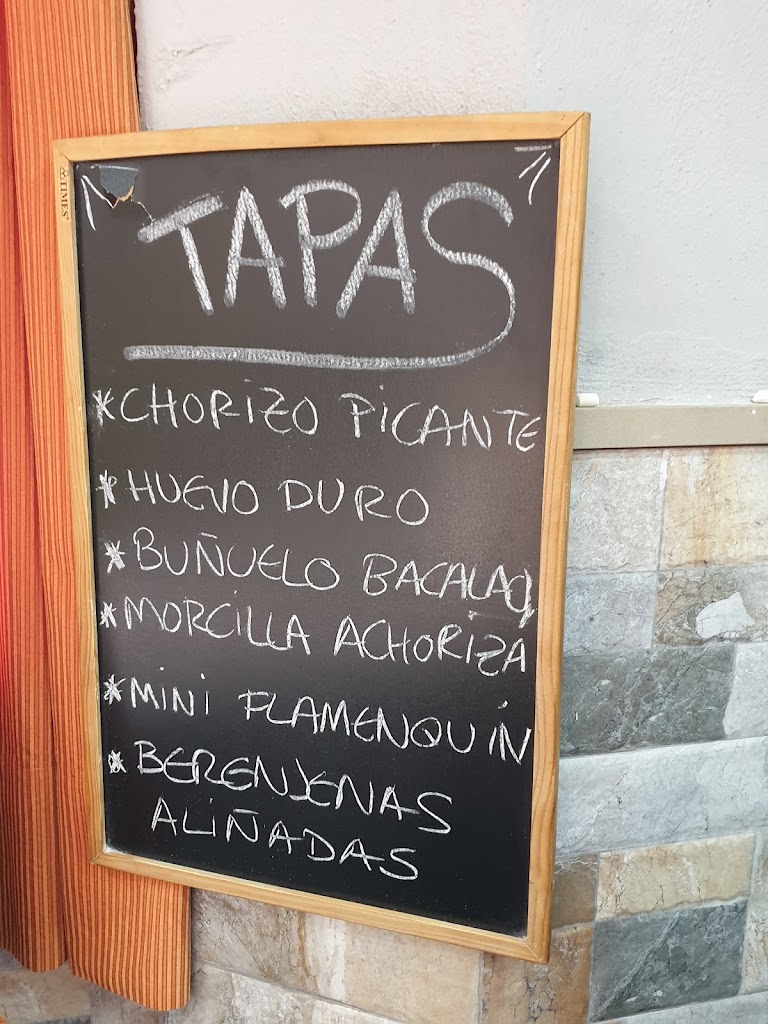 TIMES
TAPAS
*CHORIZO PICANTE
*HUEVO DURO
*BUÑUELO BACALAO
*MORCILLA ACHORIZA
*MINI FLAMENQUÍN
*BERENJENAS
ALIÑADAS